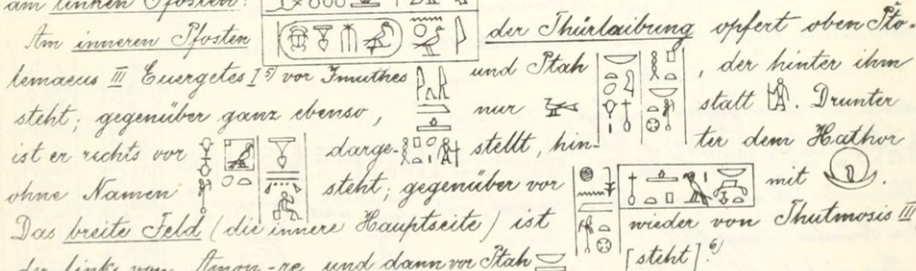 am linken Pfosten:
Am inneren Pfosten der Thürlaibung opfert oben Pto-
lemaeus III Euergetes I 5) vor Imuthes und Ptah , der hinter ihm
steht; gegenüber ganz ebenso, nur statt . Drunter
ist er rechts vor darge- stellt, hin- ter dem Hathor
ohne Namen steht; gegenüber vor mit .
Das breite Feld (die innere Hauptseite) ist wieder von Thutmosis III
der links von Amon-re und dann vor Ptah [steht]. 6)